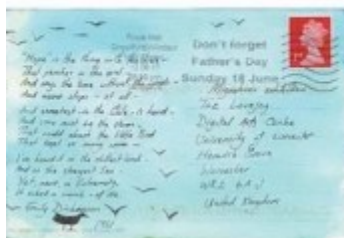 Royal Mail
Don't forget
Father's Day
Sunday 18 June
"Hope is the thing with
That perches in the soul
And sings the tune without the
And never stops - at all -
And sweetest - in the Gale - is heard -
And sore must be the storm
That could abash the little Bird
That kept so many warm -
I've heard it in the chillest land
And on the strangest Sea
Yet, never, in Extremity,
It asked a crumb - of me.
- Emily Dickinson
The
Digital Arts Centre
University of Worcester
Henwick Grove
Worcester
WR2 6AJ
United Kingdom